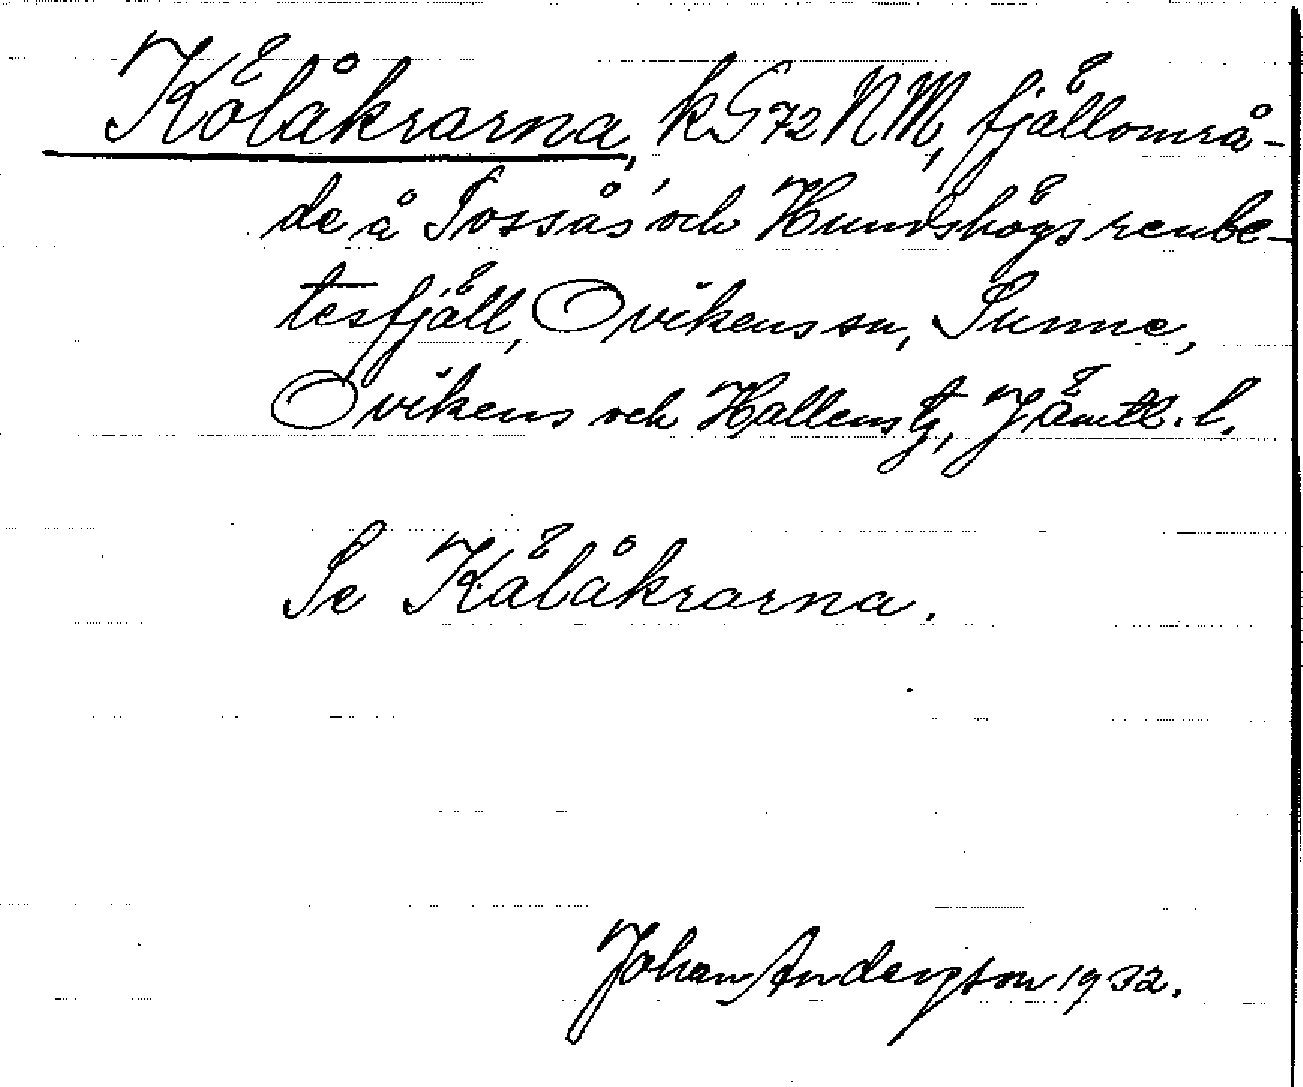 Kölåkrarna, kG72NM, fjällområ-
de å Tossås' och Hundshögs renbe-
tesfjäll, Ovikens sn, Sunne,
Ovikens och Hallens tg, Jämtl. l.
Se Kälåkrarna.
Johan Andersson 1932.